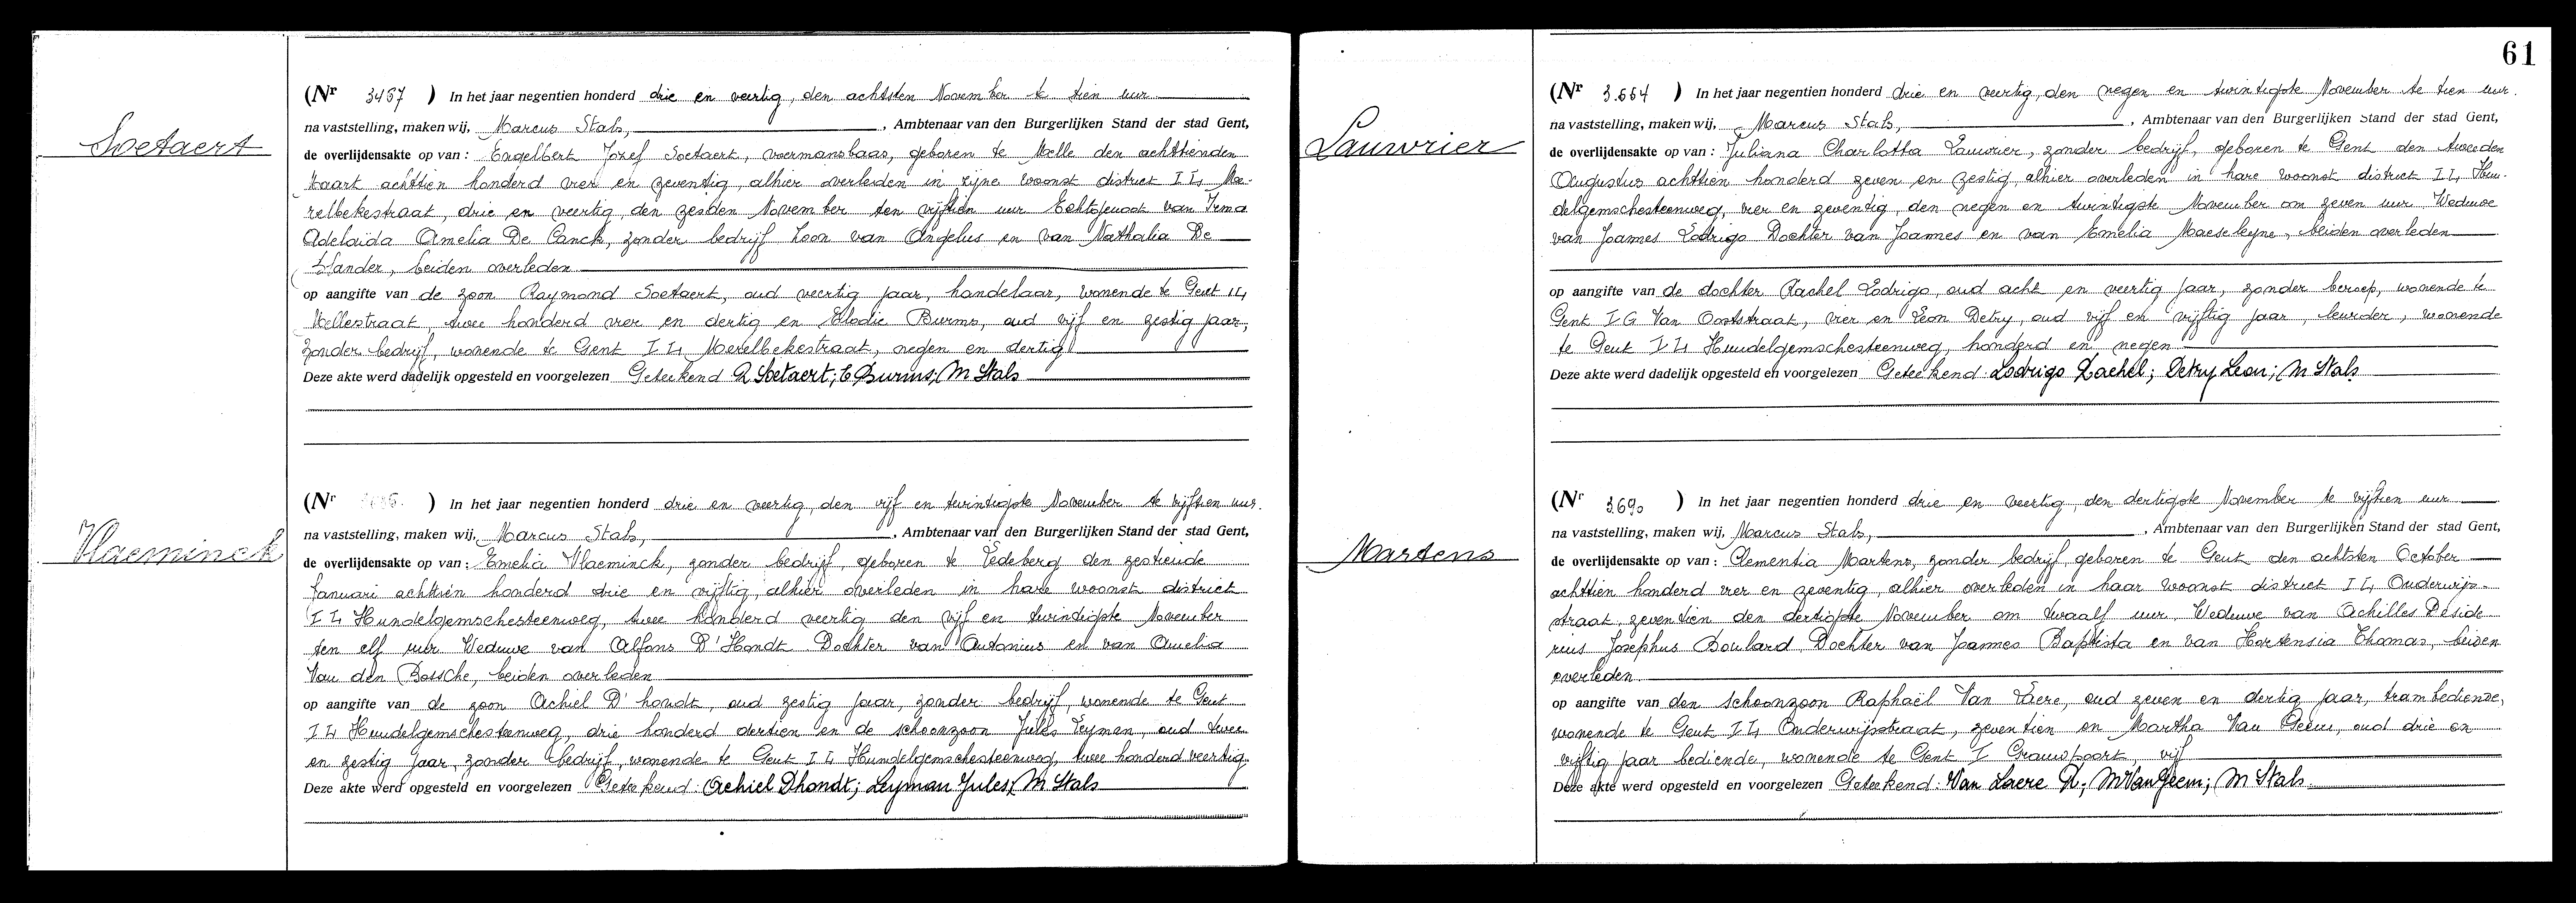 Soetaert
(Nr 3457 ) In het jaar negentien honderd drie en veertig, den achtsten November te tien uur
na vaststelling, maken wij, Marcus Stals, , Ambtenaar van den Burgerlijken Stand der stad Gent,
de overlijdensakte op van : Engelbert Jozef Soetaert, voermansbaas, geboren te Melle den achttienden
Maart achttien honderd vier en zeventig, alhier overleden in zijne woonst district I L, Me-
relbekestraat, drie en veertig, den zesden November ten vijftien uur Echtgenoot van Irma
Adelaïda Amelia De Canck, zonder bedrijf Zoon van Angelus en van Nathalia De
, beiden overleden
op aangifte van de zoon Raymond Soetaert, oud veertig jaar, handelaar, wonende te Gent I L,
Mellestraat, twee honderd vier en dertig en Elodie Burms, oud vijf en zestig jaar,
zonder bedrijf, wonende te Gent I L, Merelbekestraat, negen en dertig
Deze akte werd dadelijk opgesteld en voorgelezen Geteekend R Soetaert; E Burms; M Stals
Vlaeminck
(Nr ) In het jaar negentien honderd drie en veertig, den vijf en twintigste November te vijftien uur.
na vaststelling, maken wij, Marcus Stals, , Ambtenaar van den Burgerlijken Stand der stad Gent,
de overlijdensakte op van : Emelia Vlaeminck, zonder bedrijf, geboren te Ledeberg den zestiende
Januari achttien honderd drie en vijftig, alhier overleden in hare woonst district
I L Hundelgemschesteenweg, twee honderd veertig den vijf en twintigste November
ten elf uur Weduwe van Alfons D'Hondt Dochter van Antonius en van Amelia
Van den Bossche, beiden overleden
op aangifte van de zoon Achiel D'hondt, oud zestig jaar, zonder bedrijf, wonende te Gent
I L Hundelgemschesteenweg, drie honderd dertien en de schoonzoon Jules Leyman, oud twee
en zestig jaar, zonder bedrijf, wonende te Gent I L Hundelgemschesteenweg, twee honderd veertig.
Deze akte werd opgesteld en voorgelezen Geteekend: Achiel Dhondt; Leyman Jules; M Stals
61
Lauwrier
(Nr 3.664 ) In het jaar negentien honderd drie en veertig, den negen en twintigste November te tien uur.
na vaststelling, maken wij, Marcus Stals, , Ambtenaar van den Burgerlijken Stand der stad Gent,
de overlijdensakte op van : Juliana Charlotta Lauwrier, zonder bedrijf, geboren te Gent den tweeden
Augustus achttien honderd zeven en zestig, alhier overleden in hare woonst district I L, Hun-
delgemschesteenweg, vier en zeventig, den negen en twintigste November om zeven uur, Weduwe
van Joannes Lodrigo Dochter van Joannes en van Emelia Maeseleyne, beiden overleden
op aangifte van de dochter Rachel Lodrigo, oud acht en veertig jaar, zonder beroep, wonende te
Gent I G Van Ooststraat, vier en Leon Detry, oud vijf en vijftig jaar, leurder, wonende
te Gent I L Hundelgemschesteenweg, honderd en negen
Deze akte werd dadelijk opgesteld en voorgelezen Geteekend: Lodrigo Rachel; Detry Leon; M Stals
Martens
(Nr 3.690 ) In het jaar negentien honderd drie en veertig, den dertigste November te vijftien uur
na vaststelling, maken wij, Marcus Stals, , Ambtenaar van den Burgerlijken Stand der stad Gent,
de overlijdensakte op van : Clementia Martens, zonder bedrijf, geboren te Gent den achtsten October
achttien honderd vier en zeventig, alhier overleden in haar woonst district I L Onderwijs-
straat, zeventien den dertigste November om twaalf uur. Weduwe van Achilles Deside
rius Josephus Boulard Dochter van Joannes Baptista en van Hortensia Thomas, beiden
overleden.
op aangifte van den schoonzoon Raphaël Van Laere, oud zeven en dertig jaar, trambediende,
wonende te Gent I L Onderwijsstraat, zeventien en Martha Van Geem, oud drie en
vijftig jaar bediende, wonende te Gent I Grauwpoort, vijf
Deze akte werd opgesteld en voorgelezen Geteekend: Van Laere R.; M Van Geem; M Stals.